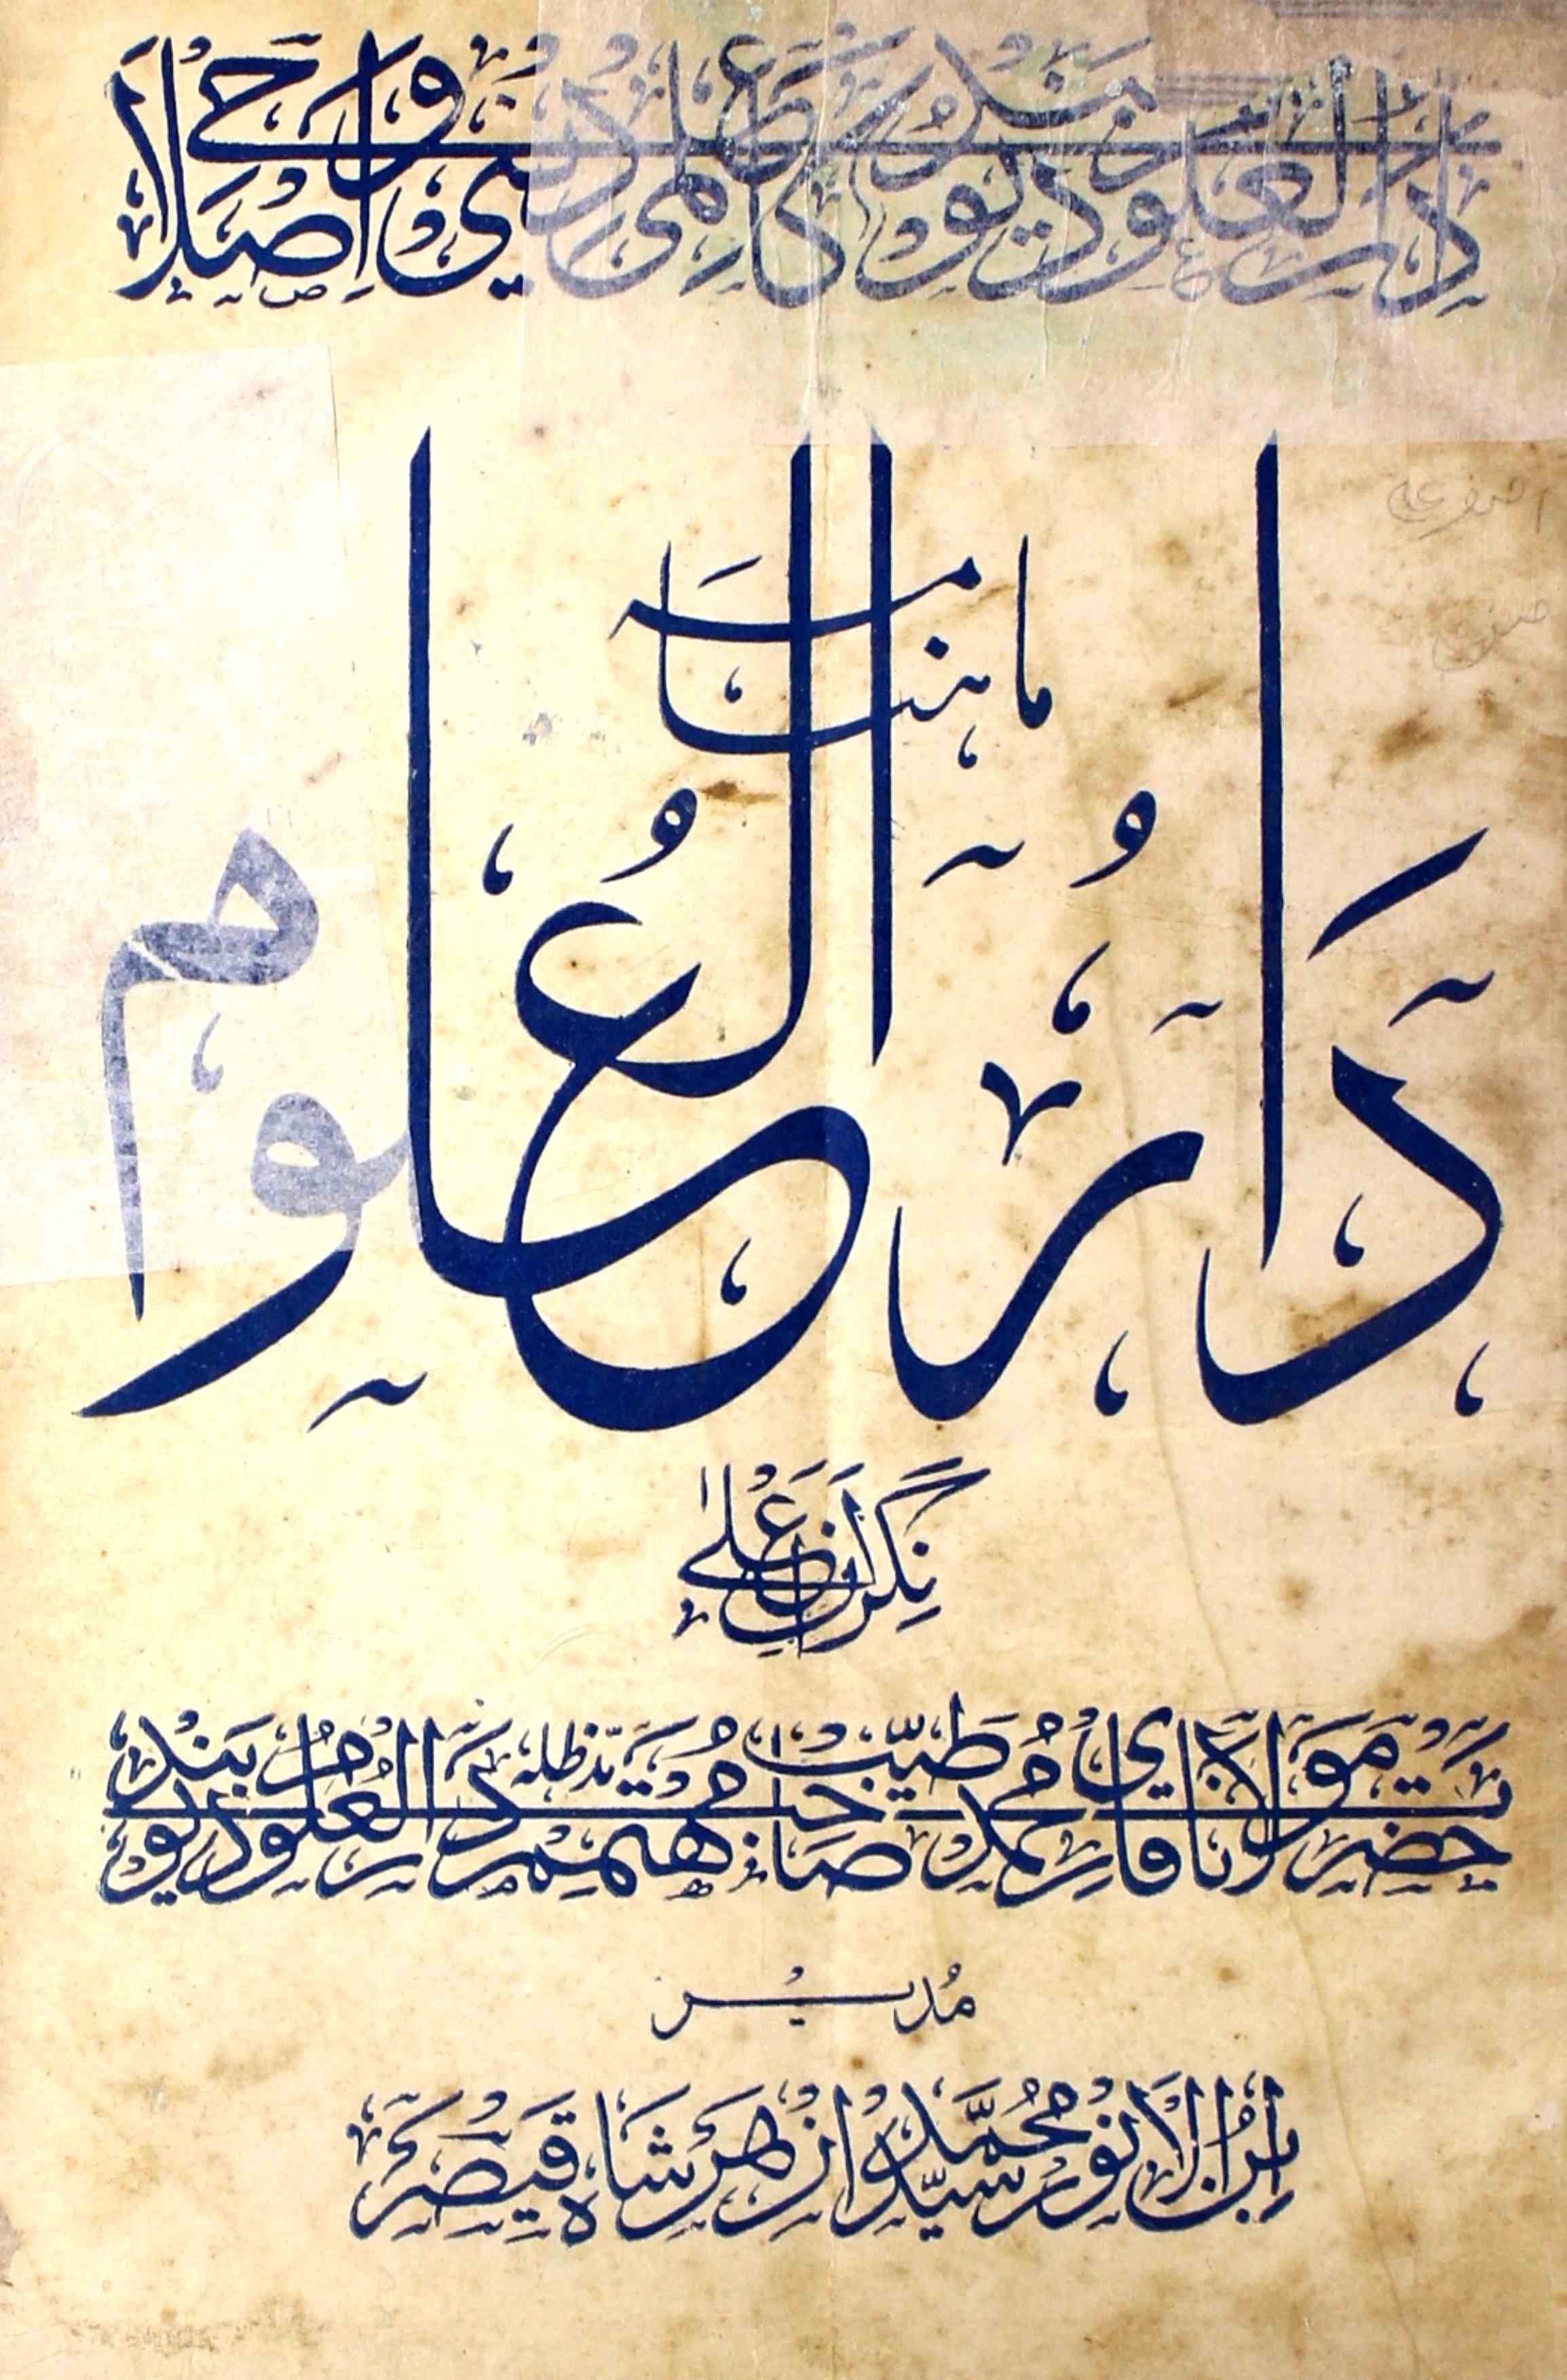 دارالعلوم دیوبند کا علمی دینی اور اصلاحی
ماہنامہ
دارالعلوم
نگران اعلیٰ
حضرت مولانا قاری محمد طیب صاحب مدظلہ مہتمم دارالعلوم دیوبند
مدیر
ابن الانور سید محمد ازہر شاہ قیصر